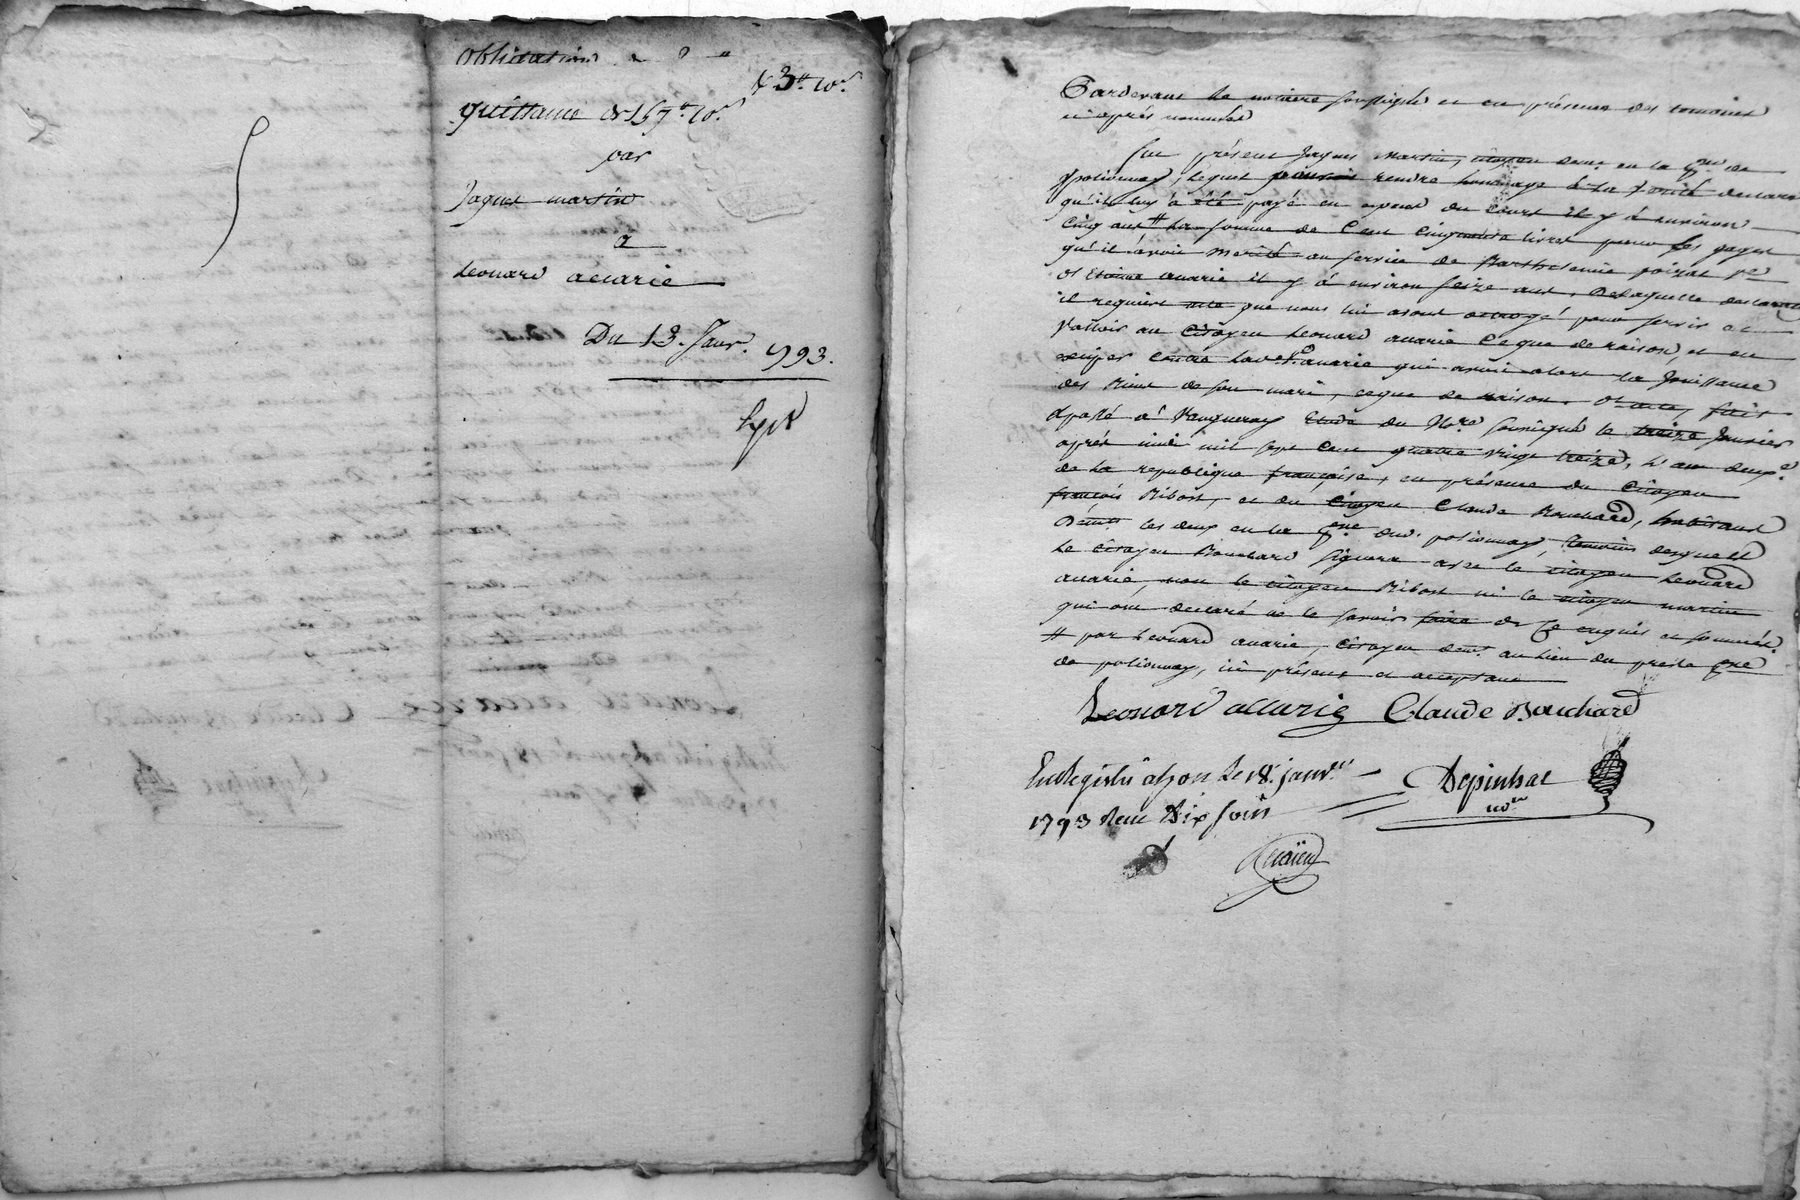 Obligation
quittance de 157tt 10s
par
Jaques martin
a
Leonard accarie
Du 13. Janr. 1793.
Pardevant le notaire soussigné et en présence des temoins
ci après nommés
fut présent Jaques Martin, citoyen demt en la psse de
pollionnay, lequel pour rendre hommage à la vérité declare
qu'il luy à été payé en espece du cours il y à environ
Cinq ans # la somme de Cent Cinquante livres pour ses gages
qu'il avoit merité au service de Barthelemie poizat ve
d'Etienne accarie il y à environ seize ans, De laquelle declaration
il requiert acte que nous lui avons octroyé pour servir et
valloir au Citoyen Leonard accarie ce que de raison, et en
exiger contre lad. ve accarie qui avoit alors la Jouissance
des Biens de son mari, ce que de raison. D'acte, fait
& passé à Vaugneray Etude du Nre soussigné le treize Janvier
après midi mil sept cent quatre vingt treize, L'an deuxe
de la republique françoise, en présence du Citoyen
françois Ribost, et du Citoyen Claude Bouchard, habitant
Demts les deux en la psse dud. pollionnay, temoins desquels
Le citoyen Bouchard signera avec le citoyen Leonard
accarie, non le citoyen Ribost ni le citoyen martin
qui ont declaré ne le savoir faire de ce enquis et sommés.
# par Leonard accarie, Citoyen demt au lieu du presle psse
de pollionnay, ici présent et acceptant
Leonard accarie Claude Bouchard
Enregistré a lyon Le 18. janv.er
1793 Reçu Dix sous
Depinhac
nore